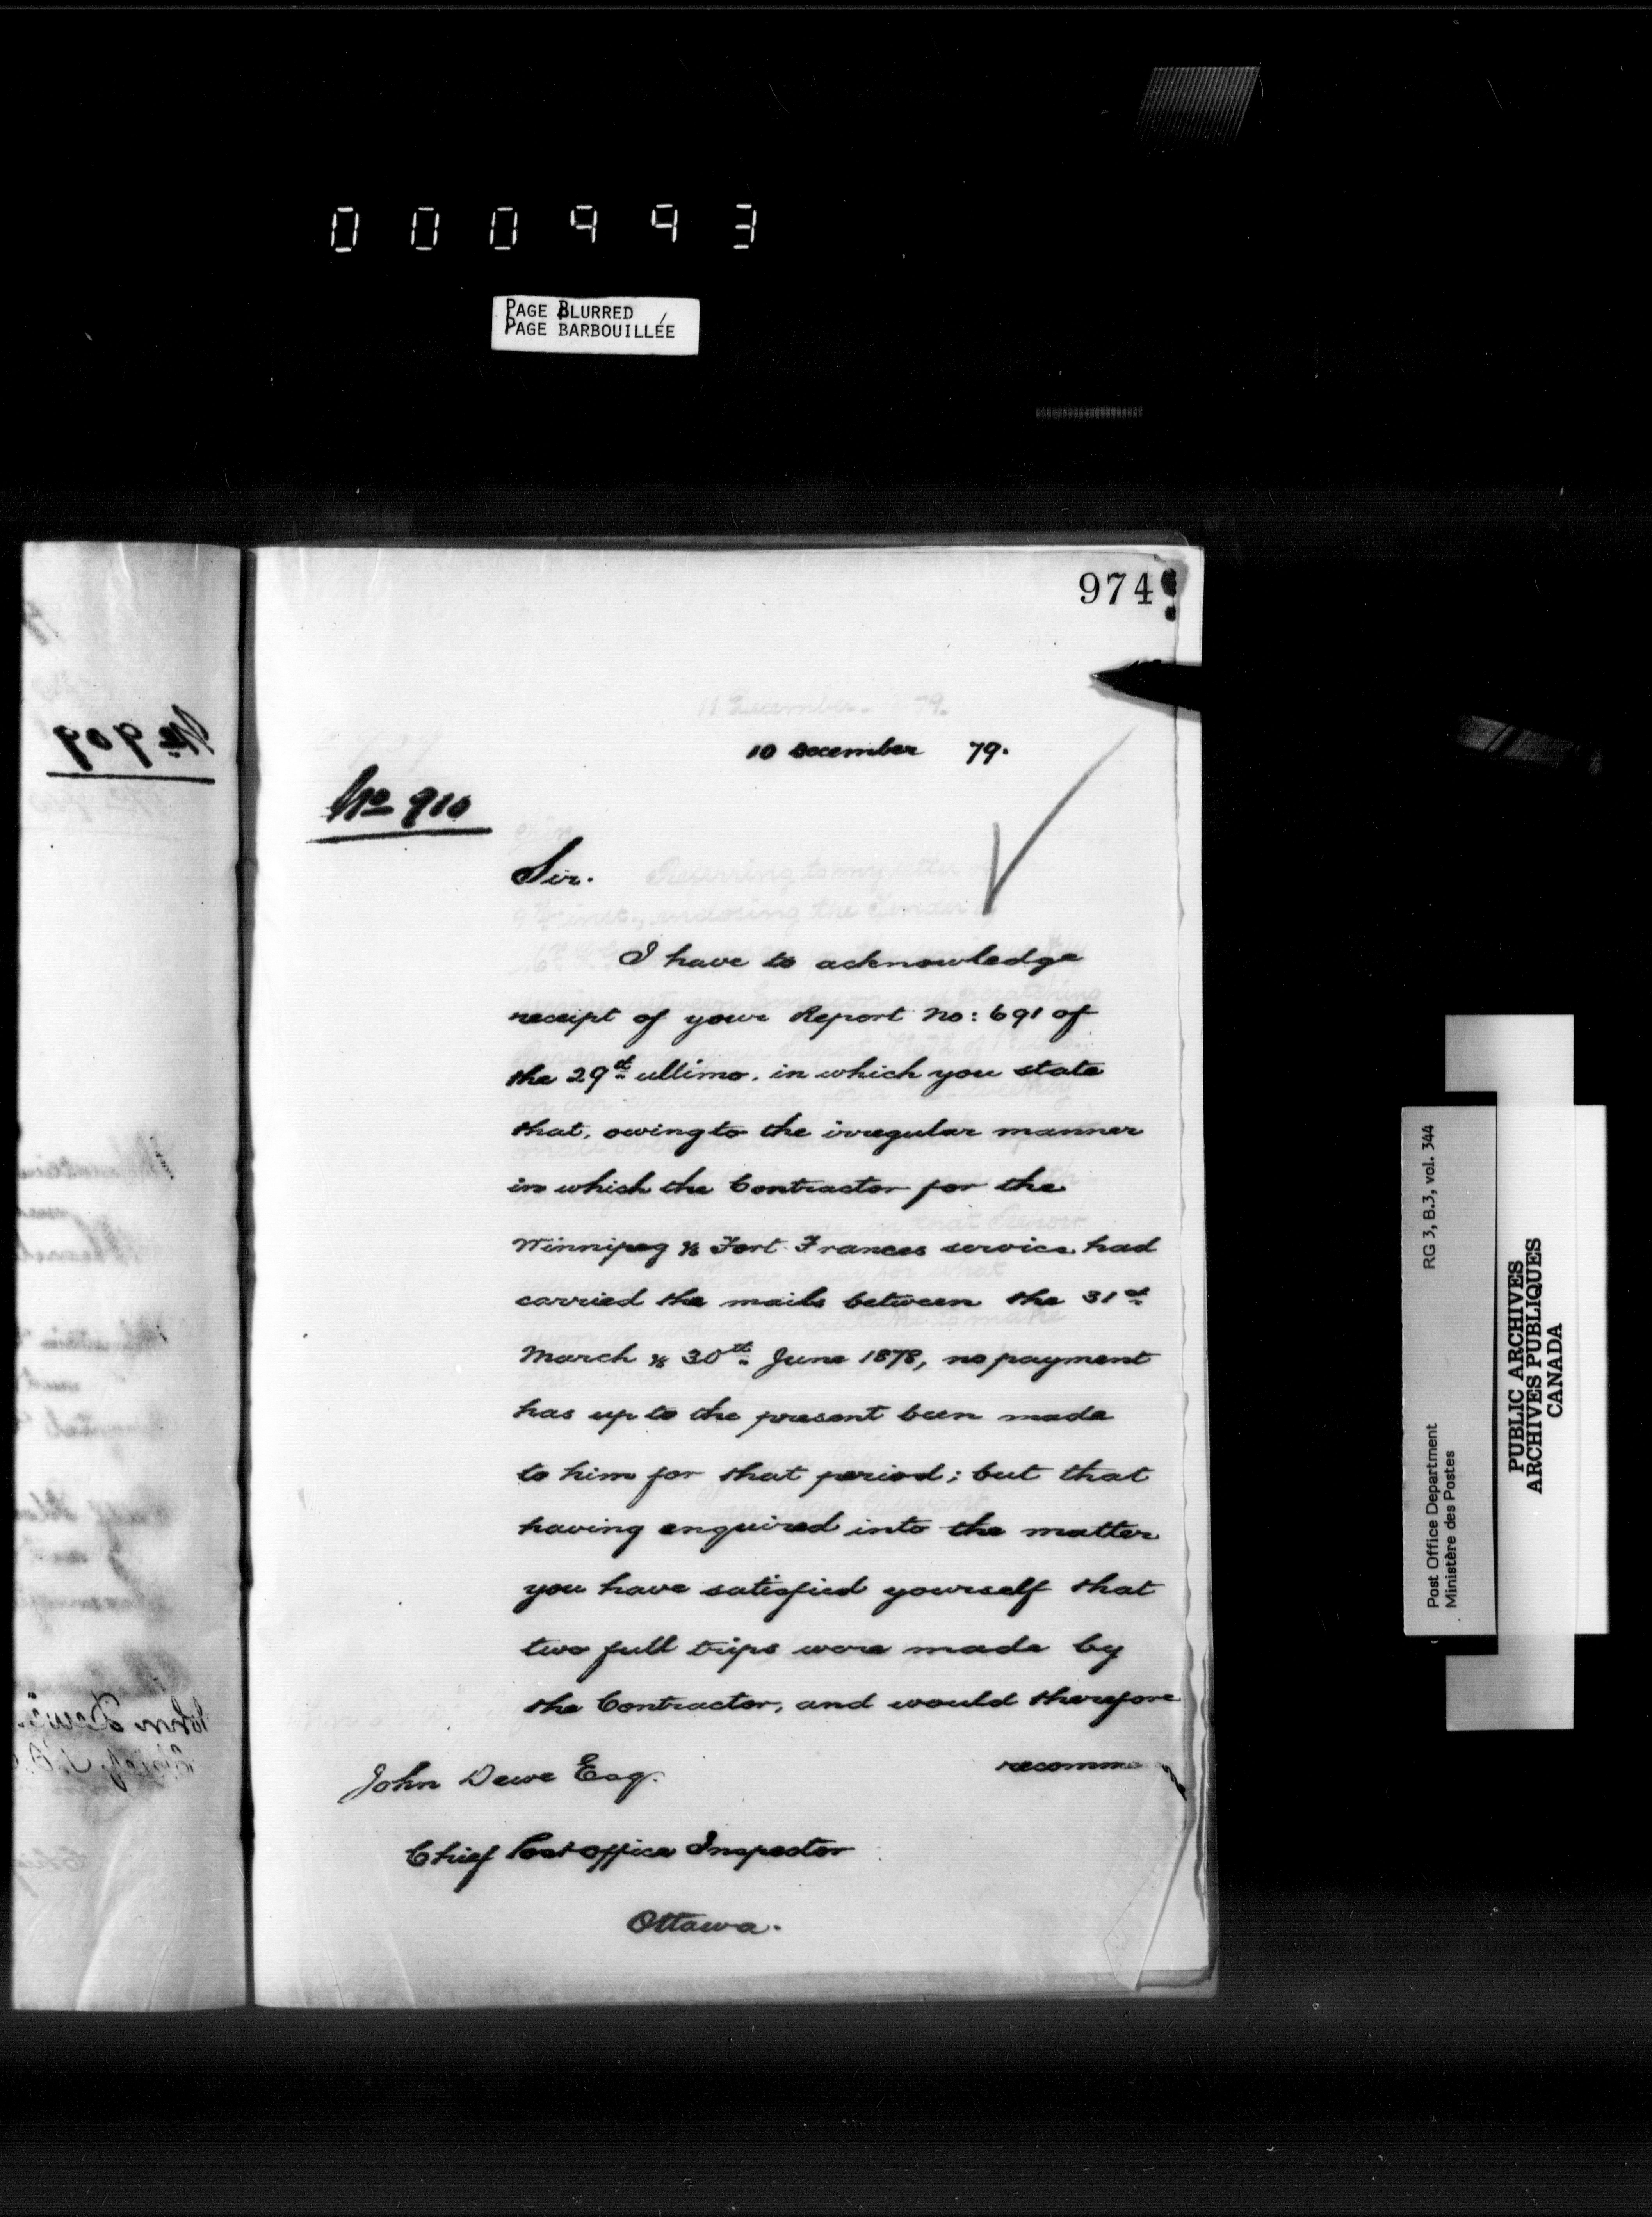 000993
PAGE BLURRED
PAGE BARBOUILLÉE
974
No 909
11 December. 79.
10 December 79.
No 910
Sir.
Referring to my letter
9th inst., enclosing the Tender
I have to acknowledge
receipt of your Report No: 691 of
the 29th ultimo. in which you state
that, owing to the irregular manner
in which the Contractor for the
Winnipeg & Fort Frances service had
carried the mails between the 31st
March & 30th June 1878, no payment
has up to the present been made
to him for that period; but that
having enquired into the matter
you have satisfied yourself that
two full trips were made by
the Contractor, and would therefore
recomme
John Dewe Esq.
Chief Post Office Inspector
Ottawa.
Post Office Department RG 3, B.3, vol. 344
Ministère des Postes
PUBLIC ARCHIVES
ARCHIVES PUBLIQUES
CANADA